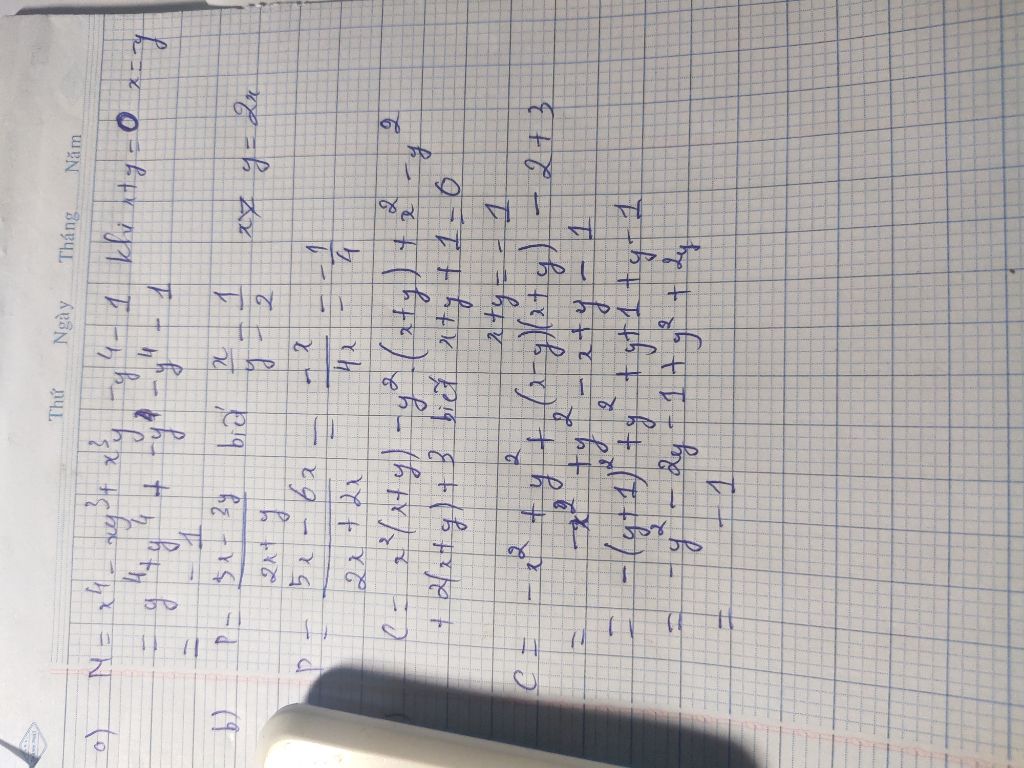 Thứ Ngày Tháng Năm
a) M = x⁴ - xy³ + x³y - y⁴ - 1 Khi x+y=0 x=-y
= y⁴ + y⁴ + -y⁴ - y⁴ - 1
= - 1
b) P = 5x - 3y / 2x + y biết x/y = 1/2 y = 2x
P = 5x - 6x / 2x + 2x = -x / 4x = -1/4
C = x²(x+y) - y²(x+y) + x² - y²
+ 2(x+y) + 3 biết x+y+1=0
x+y = -1
C = -x² + y² + (x-y)(x+y) - 2 + 3
= -x² + y² - x + y - 1
= -(y+1)² + y² + y+1 + y - 1
= -y² - 2y - 1 + y² + 2y
= - 1